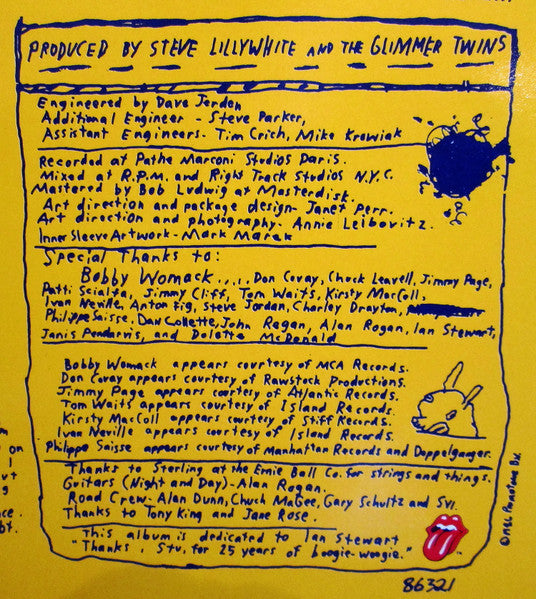 PRODUCED BY STEVE LILLYWHITE AND THE GLIMMER TWINS
Engineered by Dave Jerden
Additional Engineer - Steve Parker,
Assistant Engineers - Tim Crich, Mike Krowiak
Recorded at Pathe Marconi Studios Paris.
Mixed at R.P.M. and Right Track Studios N.Y.C.
Mastered by Bob Ludwig at Masterdisk.
Art direction and package design - Janet Perr.
Art direction and photography - Annie Leibovitz.
Inner Sleeve Artwork - Mark Marek
Special Thanks to:
Bobby Womack...., Don Covay, Chuck Leavell, Jimmy Page,
Patti Scialfa, Jimmy Cliff, Tom Waits, Kirsty MacColl,
Ivan Neville, Anton Fig, Steve Jordan, Charley Drayton,
Philippe Saisse, Dan Collette, John Regan, Alan Rogan, Ian Stewart,
Janis Pendarvis, and Dolette McDonald
Bobby Womack appears courtesy of MCA Records.
Don Covay appears courtesy of Rawstock Productions.
Jimmy Page appears courtesy of Atlantic Records.
Tom Waits appears courtesy of Island Records.
Kirsty MacColl appears courtesy of Stiff Records.
Ivan Neville appears courtesy of Island Records.
Philippe Saisse appears courtesy of Manhattan Records and Doppelganger.
Thanks to Sterling at the Ernie Ball Co. for strings and things.
Guitars (Night and Day) - Alan Rogan.
Road Crew - Alan Dunn, Chuck MaGee, Gary Schultz and Svi.
Thanks to Tony King and Jane Rose.
This album is dedicated to Ian Stewart
"Thanks, Stu. for 25 years of boogie-woogie."
© 1986 B.V.
86321